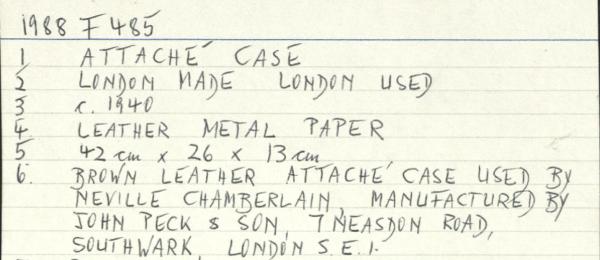 1988 F 485
1 ATTACHÉ CASE
2 LONDON MADE LONDON USED
3 c. 1940
4 LEATHER METAL PAPER
5 42 cm x 26 x 13 cm
6. BROWN LEATHER ATTACHÉ CASE USED BY
NEVILLE CHAMBERLAIN, MANUFACTURED BY
JOHN PECK & SON, 7 NEASDON ROAD,
SOUTHWARK, LONDON S.E.1.